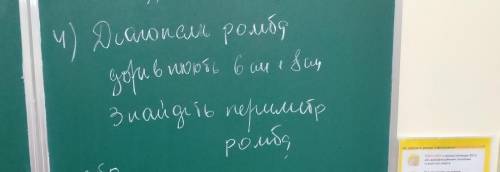 4) Діагоналі ромба
дорівнюють 6 см і 8 см
Знайдіть периметр
ромба